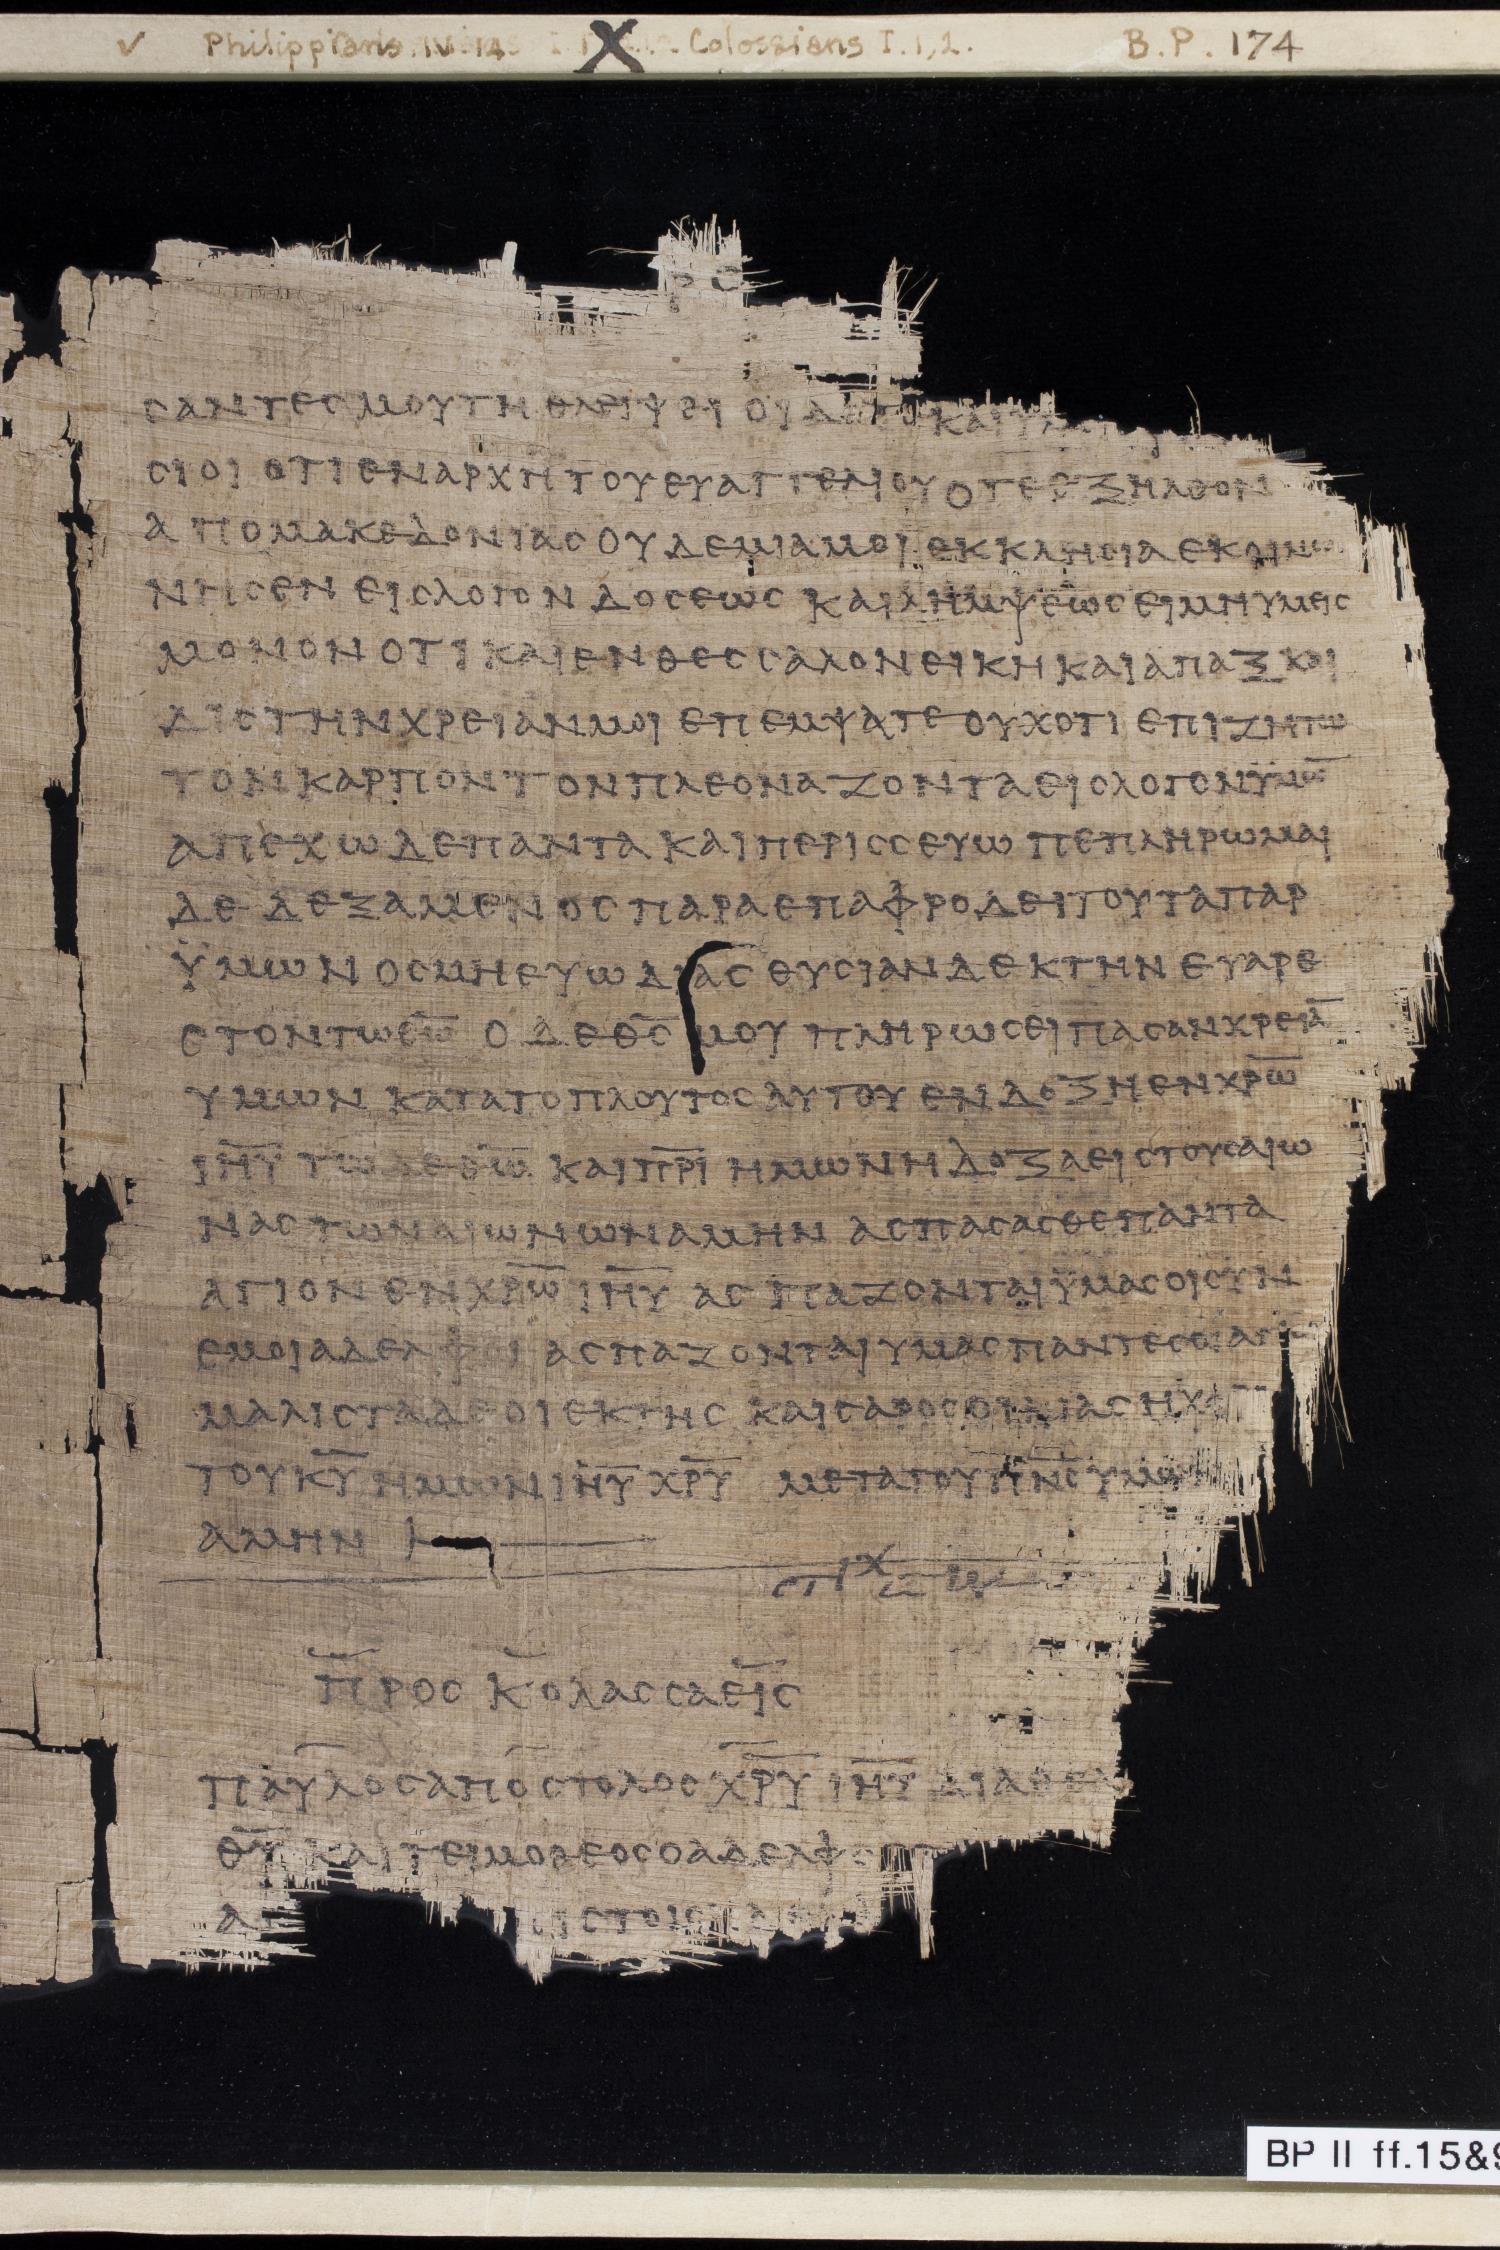 Philippians. IV. 14 X Colossians I.1,2. B.P. 174
ϲαντεϲ μου τη θλειψει οιδατε και
ϲιοι οτι εν αρχη του ευαγγελιου οτε εξηλθον
απο μακεδονιαϲ ουδεμια μοι εκκληϲια εκοινω
νηϲεν ειϲ λογον δοϲεωϲ και λημψεωϲ ει μη υμειϲ
μονον οτι και εν θεϲϲαλονεικη και απαξ και
διϲ την χρειαν μοι επεμψατε ουχ οτι επιζητω
τον καρπον τον πλεοναζοντα ειϲ λογον ϋμω̅
απεχω δε παντα και περιϲϲευω πεπληρωμαι
δεδεξαμενοϲ παρα επαφροδειτου τα παρ
ϋμων οϲμη ευωδιαϲ θυϲιαν δεκτην ευαρε
ϲτον τω θ̅ω̅ ο δε θ̅ϲ̅ μου πληρωϲει παϲαν χρεια̅
υμων κατα το πλουτοϲ αυτου εν δοξη εν χ̅ρ̅ω̅
ι̅η̅υ̅ τω δε θ̅ω̅ και π̅ρ̅ι̅ ημων η δοξα ειϲ τουϲ αιω
ναϲ των αιωνων αμην αϲπαϲαϲθε παντα
αγιον εν χ̅ρ̅ω̅ ι̅η̅υ̅ αϲπαζονται ϋμαϲ οι ϲυν
εμοι αδελφοι αϲπαζονται υμαϲ παντεϲ οι αγι
μαλιϲτα δε οι εκ τηϲ καιϲαροϲ οικιαϲ η χα
του κ̅υ̅ ημων ι̅η̅υ̅ χ̅ρ̅υ̅ μετα του π̅ν̅ϲ̅ υμω
αμην
ϲτιχ
προϲ κολαϲϲαειϲ
παυλοϲ αποϲτολοϲ χ̅ρ̅υ̅ ι̅η̅υ̅ δια θελ
θ̅υ̅ και τειμοθεοϲ ο αδελφοϲ
ιϲτοιϲ
BP II ff.15&9